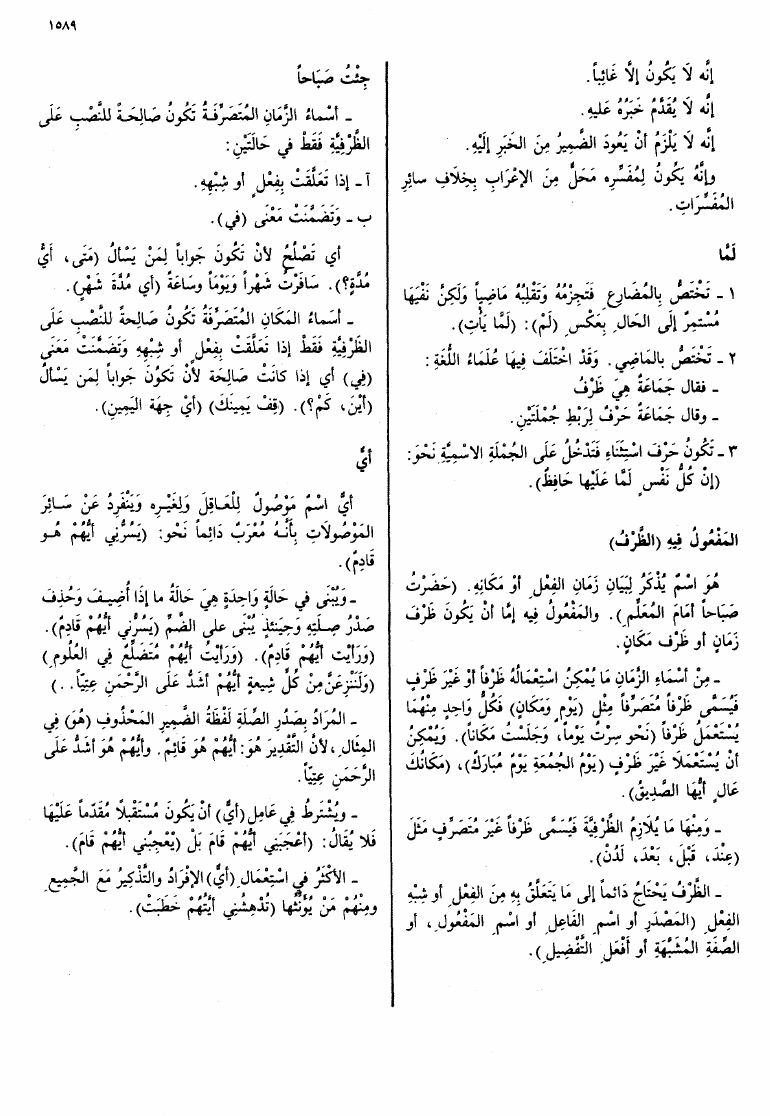 ١٥٨٩
إنَّه لَا يَكُونُ إلَّا غَائِباً.
إنَّه لَا يُقَدَّمُ خَبَرُهُ عَليهِ.
إنَّه لَا يَلْزَمُ أنْ يَعُودَ الضَّمِيرُ مِنَ الخَبَرِ إلَيْهِ.
وإنَّهُ يَكُونُ لِمُفَسِّرِه مَحَلٌّ مِنَ الإعْرَابِ بِخِلَافِ سائِرِ
المُفَسِّرَاتِ.
لَمَّا
١ - تَخْتَصُّ بِالمُضَارِعِ فَتَجْزِمُهُ وَتَقْلِبُهُ مَاضِياً وَلَكِنَّ نَفْيَهَا
مُسْتَمِرٌّ إلَى الحَالِ بِعَكْسِ (لَمْ): (لَمَّا يَأْتِ).
٢ - تَخْتَصُّ بالمَاضِي. وَقَدْ اخْتَلَفَ فِيهَا عُلَمَاءُ اللُّغَةِ:
- فقال جَمَاعَةٌ هِيَ ظَرْفٌ
- وقال جَمَاعَةٌ حَرْفٌ لِرَبْطِ جُمْلَتَيْنِ.
٣ - تَكُونُ حَرْفَ اسْتِثْنَاءٍ فَتَدْخُلُ عَلَى الجُمْلَةِ الاسْمِيَّةِ نَحْوَ:
(إنْ كُلُّ نَفْسٍ لَمَّا عَلَيْها حَافِظٌ).
المَفْعُولُ فِيهِ (الظَّرْفُ)
هُوَ اسْمٌ يُذْكَرُ لِبَيَانِ زَمَانِ الفِعْلِ أوْ مَكَانِهِ. (حَضَرْتُ
صَبَاحاً أمَامَ المُعَلِّمِ). والمَفْعُولُ فيه إمَّا أنْ يَكُونَ ظَرْفَ
زَمَانٍ أو ظَرْفَ مَكَانٍ.
- مِنْ أسْمَاءِ الزَّمَانِ مَا يُمْكِنُ اسْتِعْمَالُهُ ظَرْفاً أوْ غَيْرَ ظَرْفٍ
فَيُسَمَّى ظَرْفاً مُتَصَرِّفاً مِثْلِ (يَوْمٍ وَمَكَانٍ) فَكُلُّ وَاحِدٍ مِنْهُمَا
يُسْتَعْمَلُ ظَرْفاً (نَحْو سِرْتُ يَوْماً، وَجَلَسْتُ مَكَاناً). وَيُمْكِنُ
أنْ يُسْتَعْمَلَا غَيْرَ ظَرْفٍ (يَوْمُ الجُمْعَةِ يَوْمٌ مُبَارَكٌ)، (مَكَانُكَ
عَالٍ أيُّهَا الصَّدِيقُ).
- وَمِنْهَا مَا يُلَازِمُ الظَّرْفِيَّةَ فَيُسَمَّى ظَرْفاً غَيْرَ مُتَصَرِّفٍ مَثَلَ
(عِنْدَ، قَبْلَ، بَعْدَ، لَدُنْ).
- الظَّرْفُ يَحْتَاجُ دَائماً إلى مَا يَتَعَلَّقُ بِهِ مِنَ الفِعْلِ أو شِبْهِ
الفِعْلِ (المَصْدَرِ أو اسْمِ الفَاعِلِ أو اسْمِ المَفْعُولِ، أو
الصِّفَةِ المُشَبَّهَةِ أو أفْعَلِ التَّفْضِيلِ).
جِئْتُ صَبَاحاً
- أسْمَاءُ الزَّمَانِ المُتَصَرِّفَةُ تَكُونُ صَالِحَةً للنَّصْبِ عَلَى
الظَّرْفِيَّةِ فَقَطْ في حَالَتَيْنِ:
آ - إذا تَعَلَّقَتْ بِفِعْلٍ أو شِبْهِهِ.
ب - وَتَضَمَّنَتْ مَعْنَى (في).
أي تَصْلُحُ لأنْ تَكُونَ جَواباً لِمَنْ يَسْألُ (مَتَى، أيُّ
مُدَّةٍ؟). سَافَرْتُ شَهْراً وَيَوْماً وسَاعَةً (أي مُدَّةَ شَهْرٍ).
- أسمَاءُ المَكَانِ المُتَصَرِّفَةُ تَكُونُ صَالِحةً للنَّصْبِ عَلَى
الظَّرْفِيَّةِ فَقَطْ إذا تَعَلَّقَتْ بِفِعْلٍ أو شِبْهِهِ وَتَضَمَّنَتْ مَعْنَى
(فِي) أي إذا كانَتْ صَالِحَة لأنْ تَكُونَ جَواباً لِمَن يَسْألُ
(أيْنَ، كَمْ؟). (قِفْ يَمِينَكَ) (أيْ جِهَةَ اليَمِينِ).
أيُّ
أيُّ اسْمٌ مَوْصُولٌ لِلْعَاقِلِ وَلِغَيْرِه وَيَنْفَرِدُ عَنْ سَائِرَ
المَوْصُولَاتِ بِأنَّهُ مُعْرَبٌ دَائِماً نَحْو: (يَسُرُّنِي أيُّهُمْ هُو
قَادِمٌ).
- وَيُبْنَى في حَالَةٍ وَاحِدَةٍ هِيَ حَالَةُ ما إذَا أُضِيفَ وَحُذِفَ
صَدْرُ صِلَتِهِ وَحِينَئِذٍ يُبْنَى على الضَّمِّ (يَسُرُّنِي أيُّهُمْ قَادِمٌ).
(وَرَأيْت أيُّهُمْ قَادِمٌ). (وَرَأيْتُ أيُّهُمْ مُتَضَلِّعٌ فِي العُلُومِ)
(وَلَنَنْزِعَنَّ مِنْ كُلِّ شِيعةٍ أيُّهُمْ أشَدُّ عَلَى الرَّحْمَنِ عِتِيّاً..)
- المُرَادُ بِصَدْرِ الصِّلَةِ لَفْظَةُ الضَّمِيرِ المَحْذُوفِ (هُوَ) فِي
المِثَالِ، لأنَّ التَّقْدِيرَ هُوَ: أيُّهُمْ هُوَ قَائِمٌ. وأيُّهُمْ هُوَ أشَدُّ عَلَى
الرَّحمَنِ عِتِيّاً.
- ويُشْتَرطُ فِي عَامِلِ (أيّ) أنْ يَكُونَ مُسْتَقْبلاً مُقَدَّماً عَلَيْهَا
فَلَا يُقَالُ: (أعْجَبَنِي أيُّهُمْ قَامَ بَلْ (يُعْجِبُنِي أيُّهُمْ قَامَ).
- الأكْثَرُ فِي اسْتِعْمَالِ (أيّ) الإفْرَادُ والتَّذْكِيرُ مَعَ الجَمِيعِ
ومِنْهُمْ مَنْ يُؤَنِّثُها (تُدْهِشُنِي أيَّتُهُمْ خَطَبَتْ).